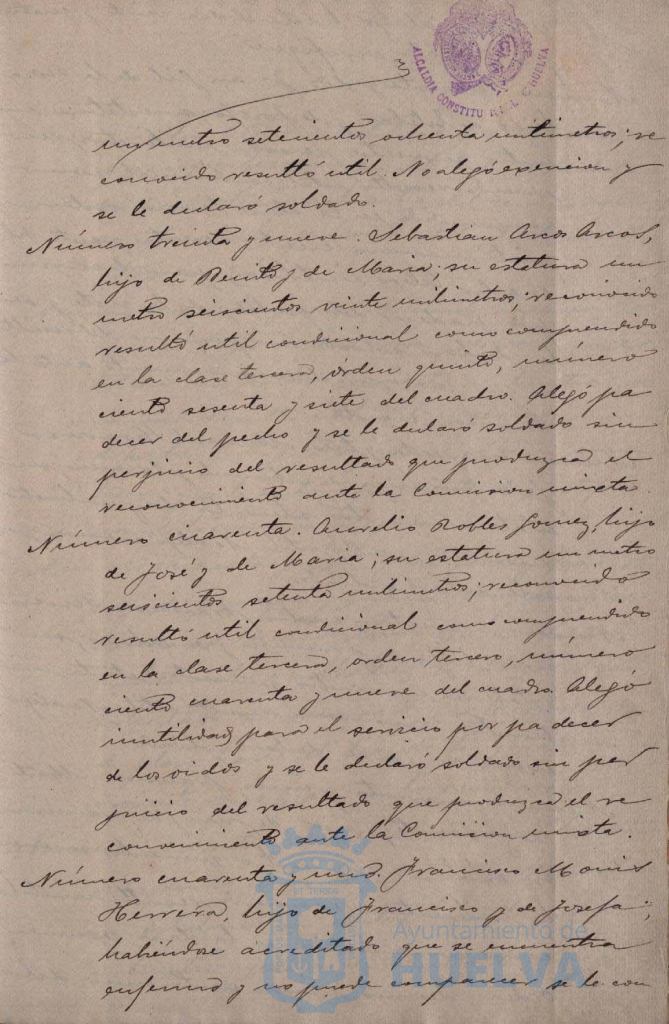 ALCALDIA CONSTITUCIONAL HUELVA
un metro setecientos ochenta milimetros; re
conocido resultó util. No alegó exencion y
se le declaró soldado.
Número treinta y nueve. Sebastian Arcos Arcos,
hijo de Benito y de Maria; su estatura un
metro seiscientos veinte milimetros; reconocido
resultó util condicional como comprendido
en la clase tercera, órden quinto, número
ciento sesenta y siete del cuadro. Alegó pa
decer del pecho y se le declaró soldado sin
perjuicio del resultado que produzca el
reconocimiento ante la Comision mixta.
Número cuarenta. Aurelio Robles Gomez, hijo
de José y de Maria; su estatura un metro
seiscientos setenta milimetros; reconocido
resultó util condicional como comprendido
en la clase tercera, orden tercero, número
ciento cuarenta y nueve del cuadro. Alegó
inutilidad para el servicio por pa decer
de los oidos y se le declaró soldado sin per
juicio del resultado que produzca el re
conocimiento ante la Comision mixta.
Número cuarenta y uno. Francisco
Herrera, hijo de Francisco y de Josefa;
habiéndose acreditado que se encuentra
enfermo y no puede comparecer se le con
Ayuntamiento de
HUELVA